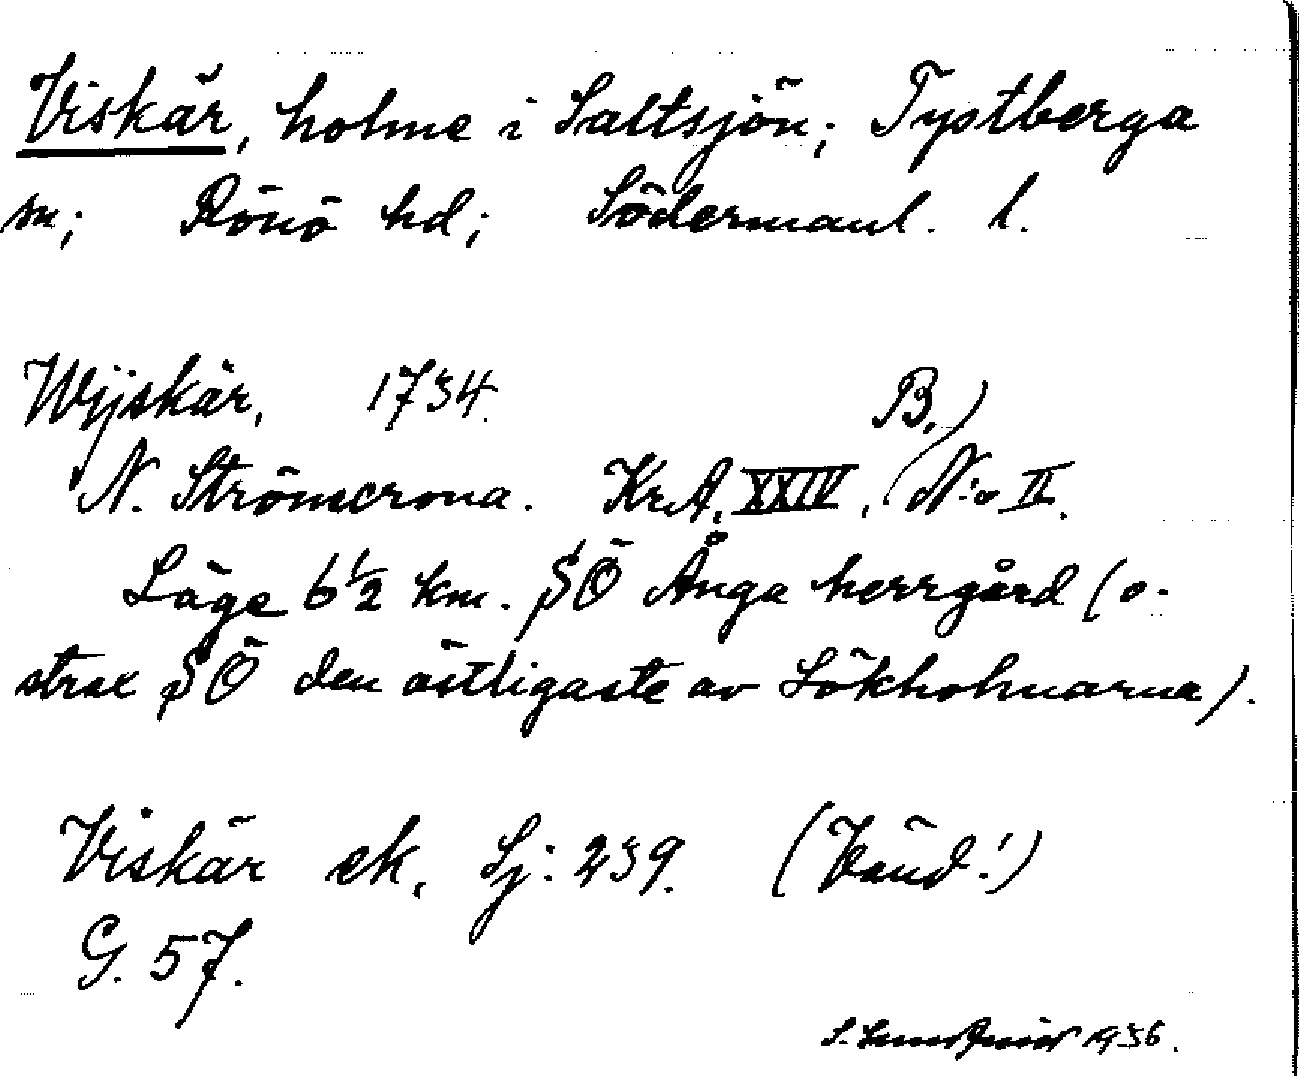 Viskär, holme i Saltsjön; Tystberga
sn; Rönö hd; Södermanl. l.
Wijskär, 1734. B.)
N. Strömcrona. Kr.A. XXIV, (N:o II.
Läge 6 1/2 km. SÖ Ånga herrgård (o-
strax SÖ den östligaste av Lökholmarna).
Viskär ek. Sj: 239. (Vänd!)
G. 57.
S. 1936.